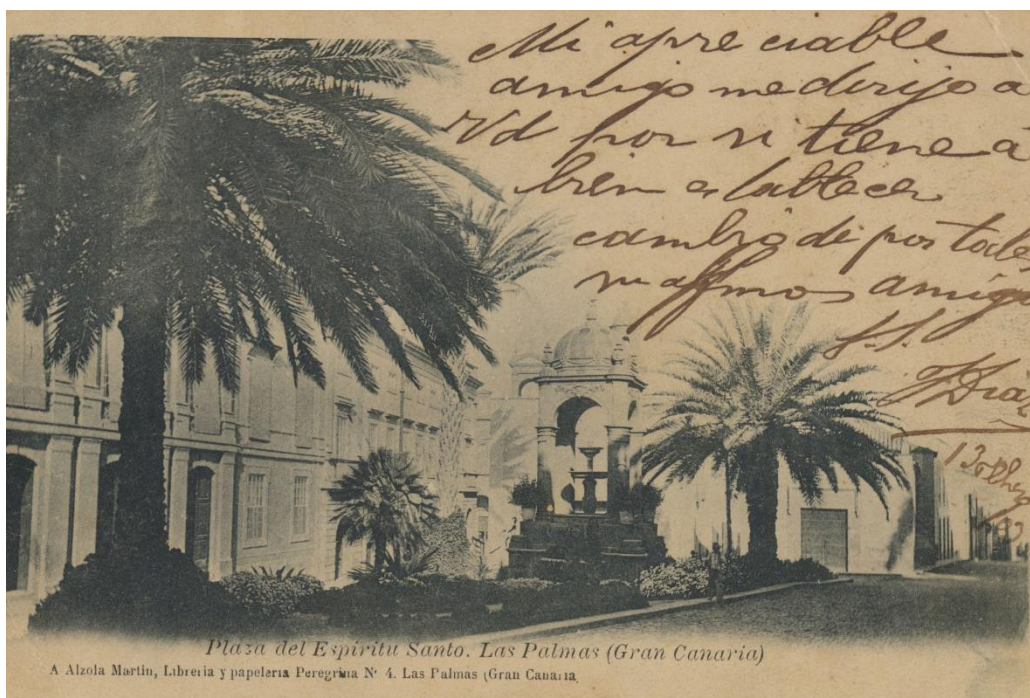 Mi apreciable
amigo me dirijo a
Vd por si tiene a
bien establecer
cambio de postales
su affmos amigo
S.S.
Diaz
Plaza del Espiritu Santo. Las Palmas (Gran Canaria)
A Alzola Martin, Libreria y papeleria Peregrina Nº 4. Las Palmas (Gran Canaria